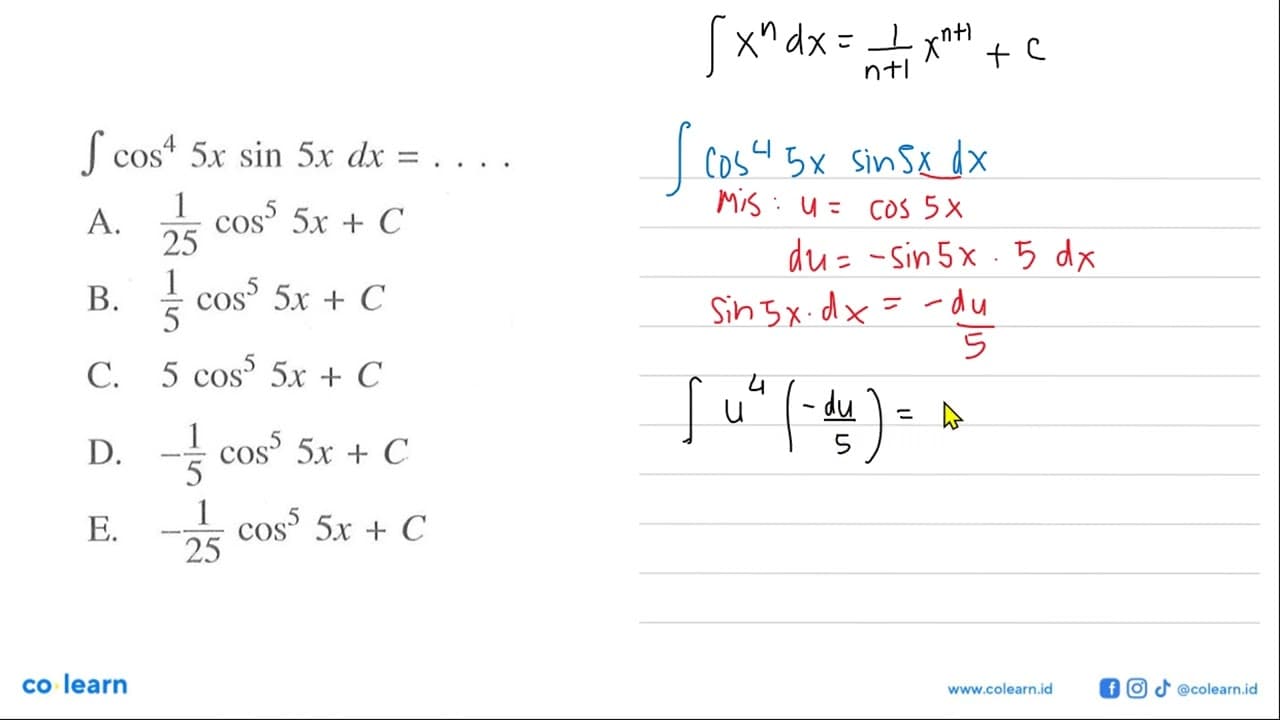 ∫ cos⁴ 5x sin 5x dx = . . . .
A. 1/25 cos⁵ 5x + C
B. 1/5 cos⁵ 5x + C
C. 5 cos⁵ 5x + C
D. -1/5 cos⁵ 5x + C
E. -1/25 cos⁵ 5x + C
∫ xⁿ dx = 1/(n+1) xⁿ⁺¹ + C
∫ cos⁴ 5x sin5x dx
Mis : u = cos 5x
du = -sin5x . 5 dx
sin5x . dx = -du/5
∫ u⁴ (-du/5) =
co learn
www.colearn.id
@colearn.id